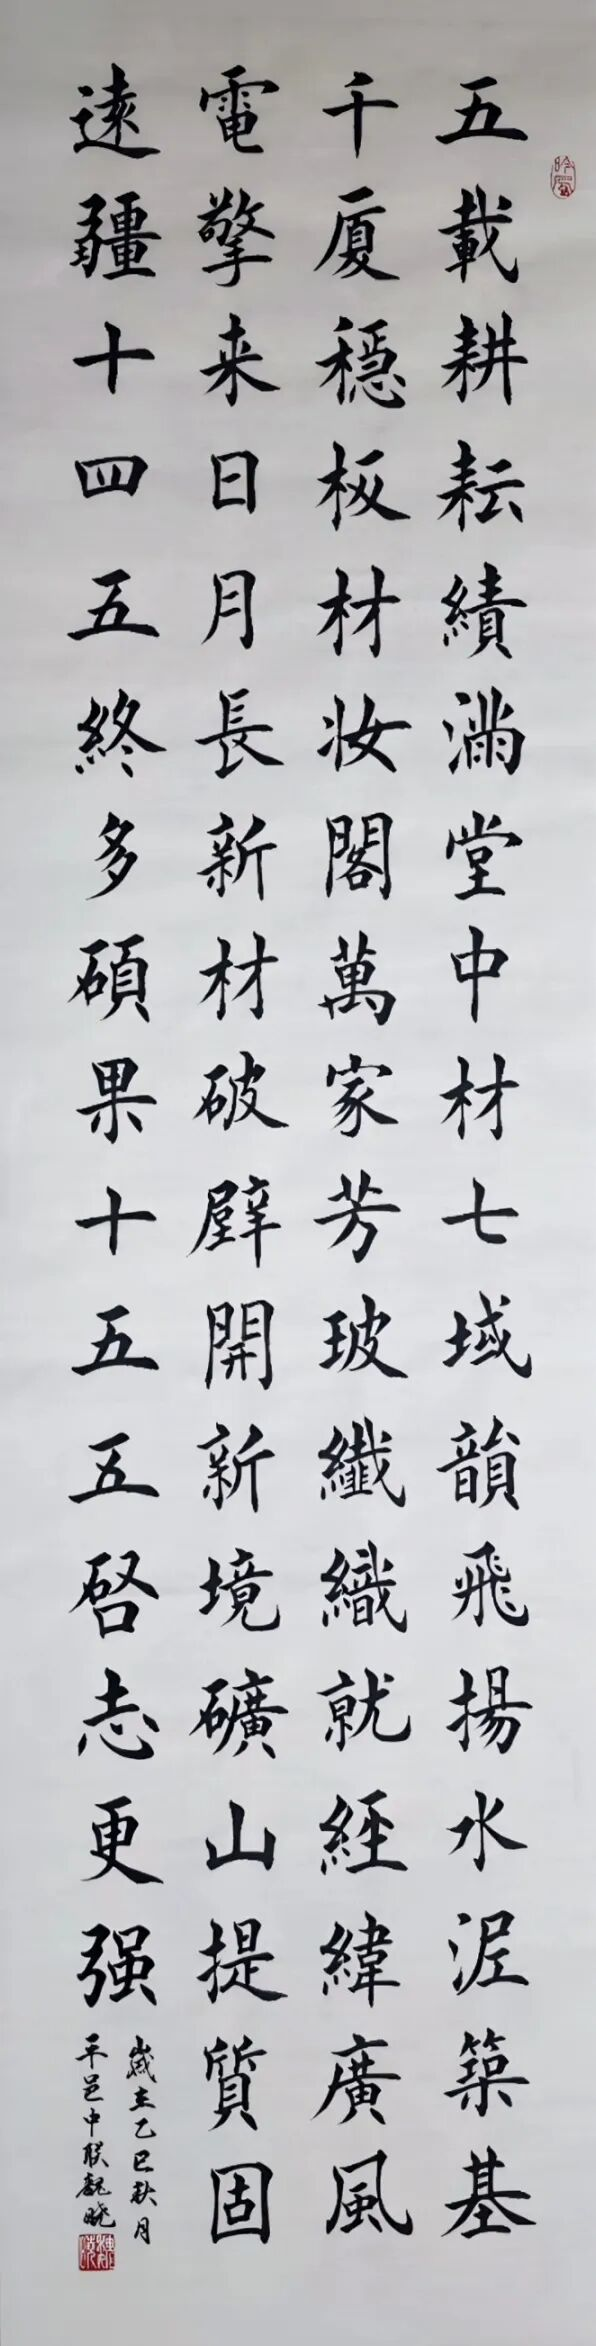 五載耕耘績滿堂中材七域韻飛揚水泥築基
千厦穩板材妝閣萬家芳玻纖織就經緯廣風
電擎来日月長新材破壁開新境礦山提質固
遠疆十四五終多碩果十五五啓志更强
歲在乙巳秋月
平邑中联魏晓